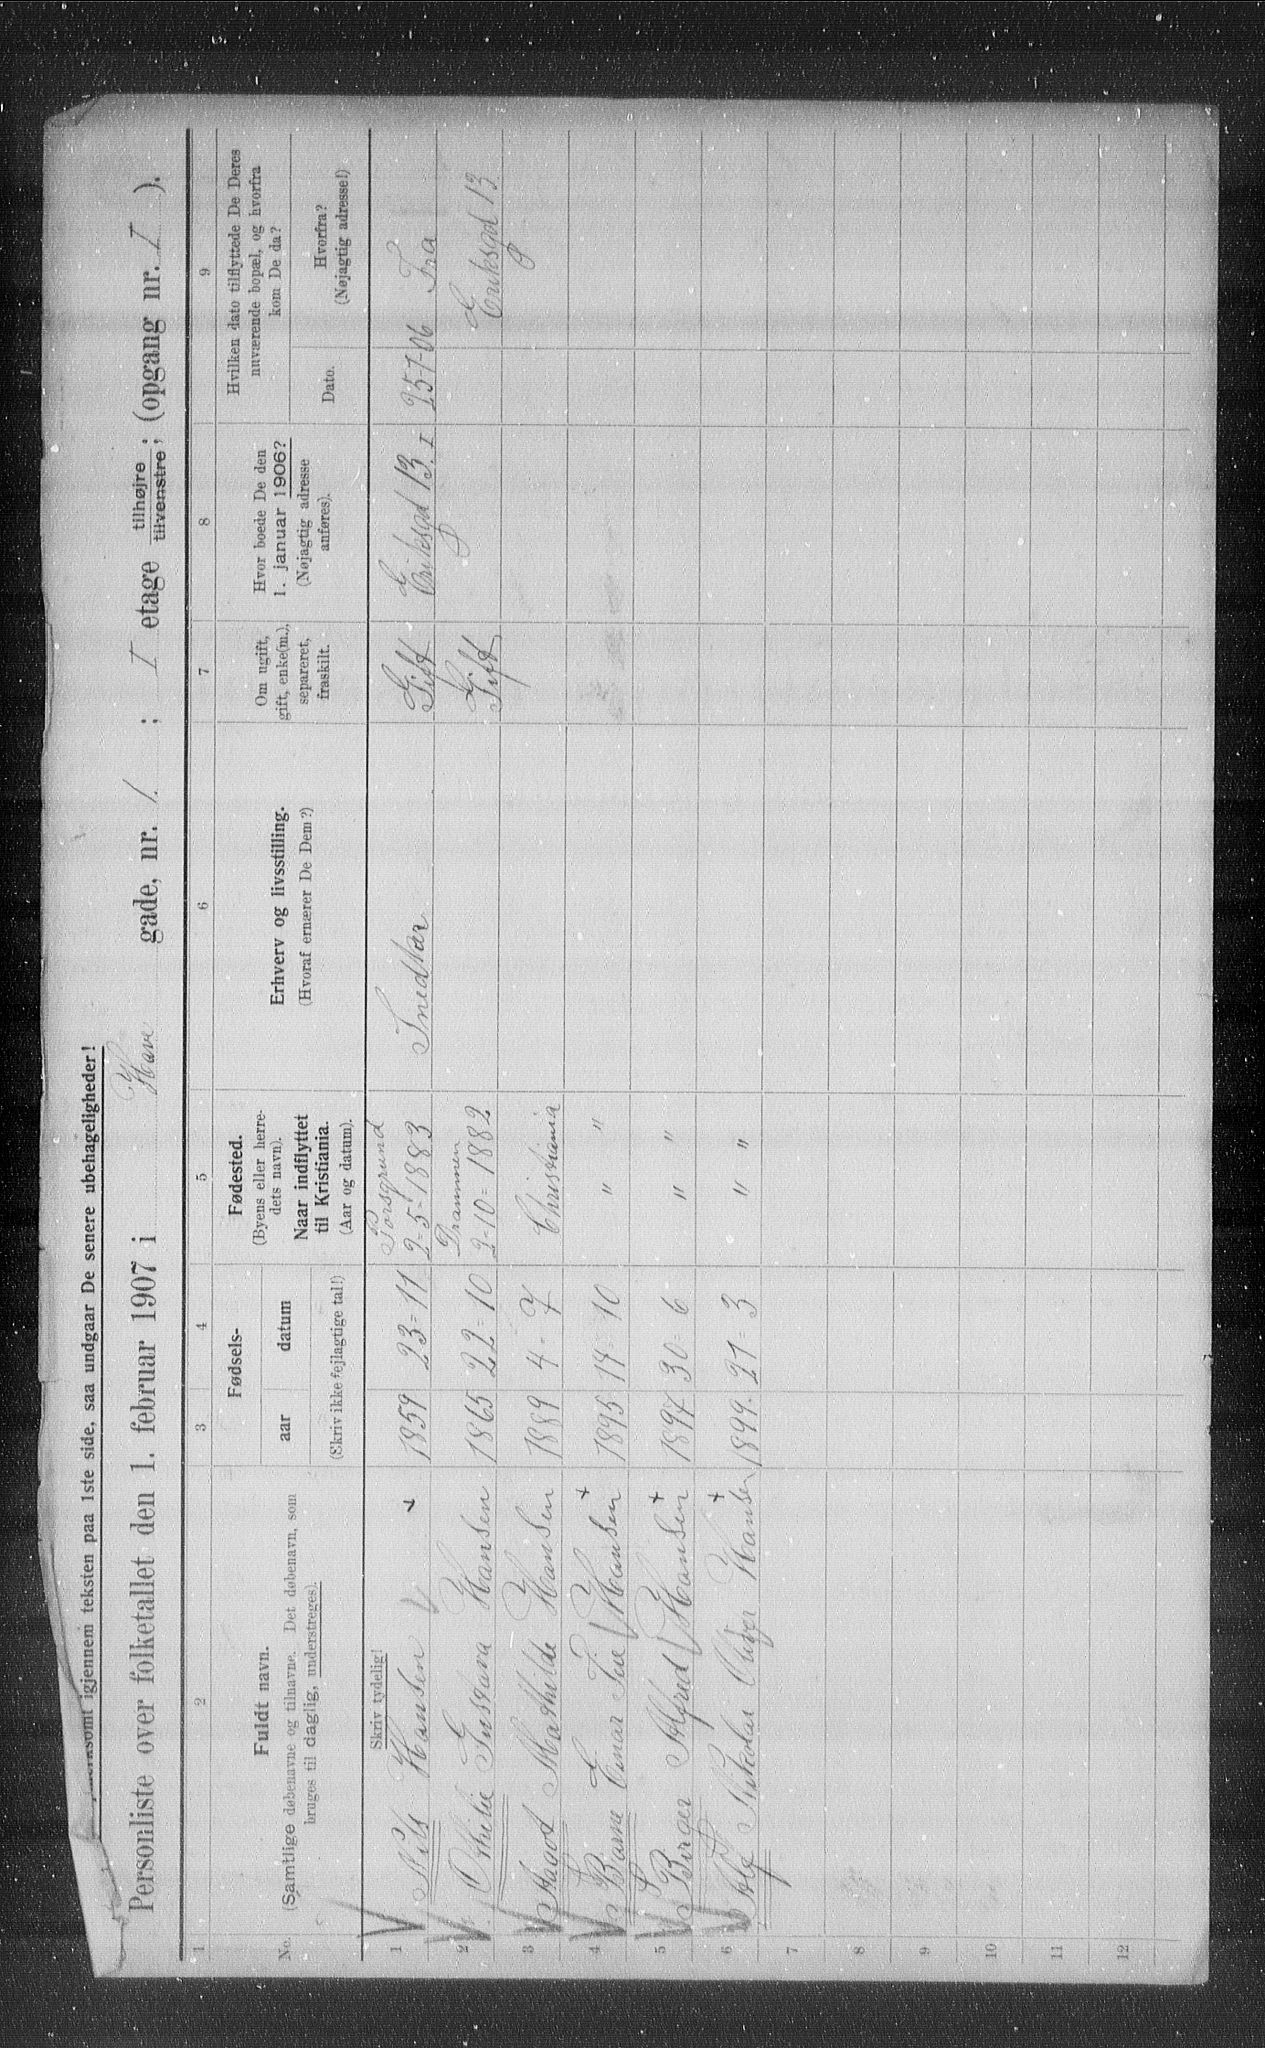 igjennem teksten paa 1ste side, saa undgaar De senere ubehageligheder!
Personliste over folketallet den 1. februar 1907 i Have gade, nr. 1 ; I etage tilhøjre tilvenstre ; (opgang nr. I ).
1 2 3 4 5 6 7 8 9
No.
Fuldt navn.
(Samtlige døbenavne og tilnavne. Det døbenavn, som
bruges til daglig, understreges).
Fødsels-
aar datum
(Skriv ikke fejlagtige tal!)
Fødested.
(Byens eller herre-
dets navn).
Naar indflyttet
til Kristiania.
(Aar og datum).
Erhverv og livsstilling.
(Hvoraf ernærer De Dem?)
Om ugift,
gift, enke(m.),
separeret,
fraskilt.
Hvor boede De den
1. januar 1906?
(Nøjagtig adresse
anføres).
Hvilken dato tilflyttede De Deres
nuværende bopæl, og hvorfra
kom De da?
Dato.
Hvorfra?
(Nøjagtig adresse!)
Skriv tydelig!
1 Nils Hansen 1859 23=11 Porsgrund 2=5=1883 Snedkar Gift Eriksgd 13. I 25-7-06 Fra
2 Othilie Gustava Hansen 1865 22=10 Drammen 2=10=1882 Gift Eriksgd 13
3 Aagot Mathilde Hansen 1889 4=7 Christiania
4 Bjarne Einar Hansen 1895 14=10 " "
5 Birger Alfred Hansen 1897 30=6 " "
6 Alf Nikolai Hansen 1899. 21=3 " "
7
8
9
10
11
12